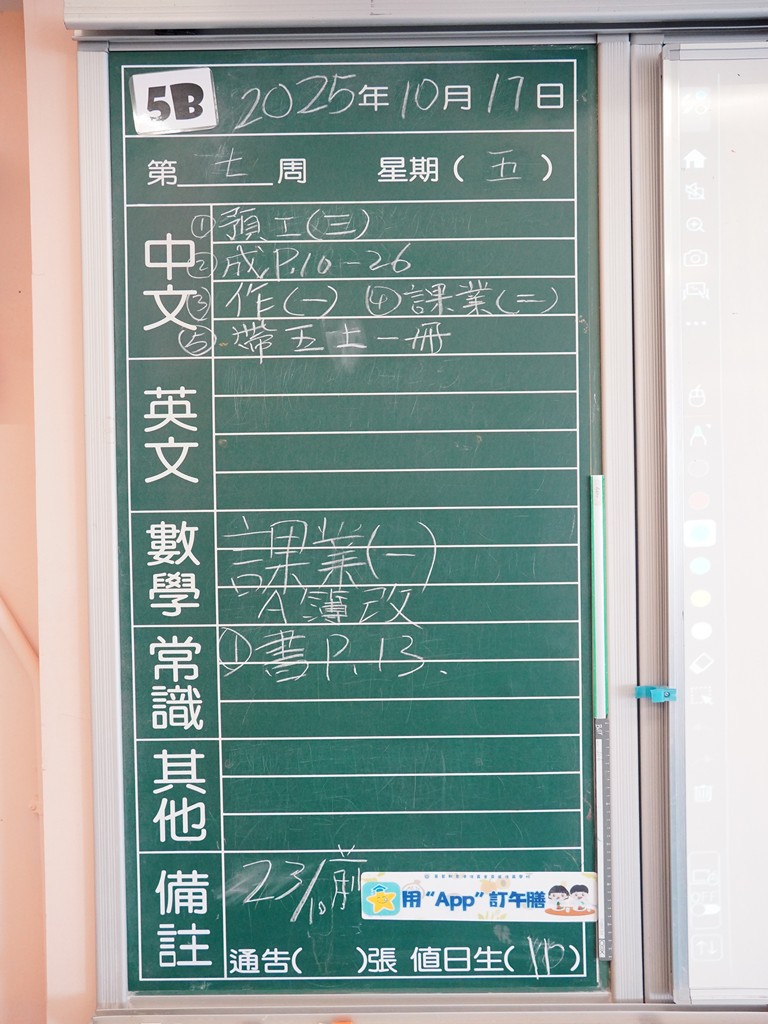 5B 2025年10月17日
第七周 星期(五)
中文
①預工(三)
②成P.10-26
③作(一) ④課業(二)
⑤帶五上一冊
英文
數學
課業(一)
A簿改
常識
①書P.13.
其他
備註
23/10前
用“App”訂午膳
通告( )張 值日生( )